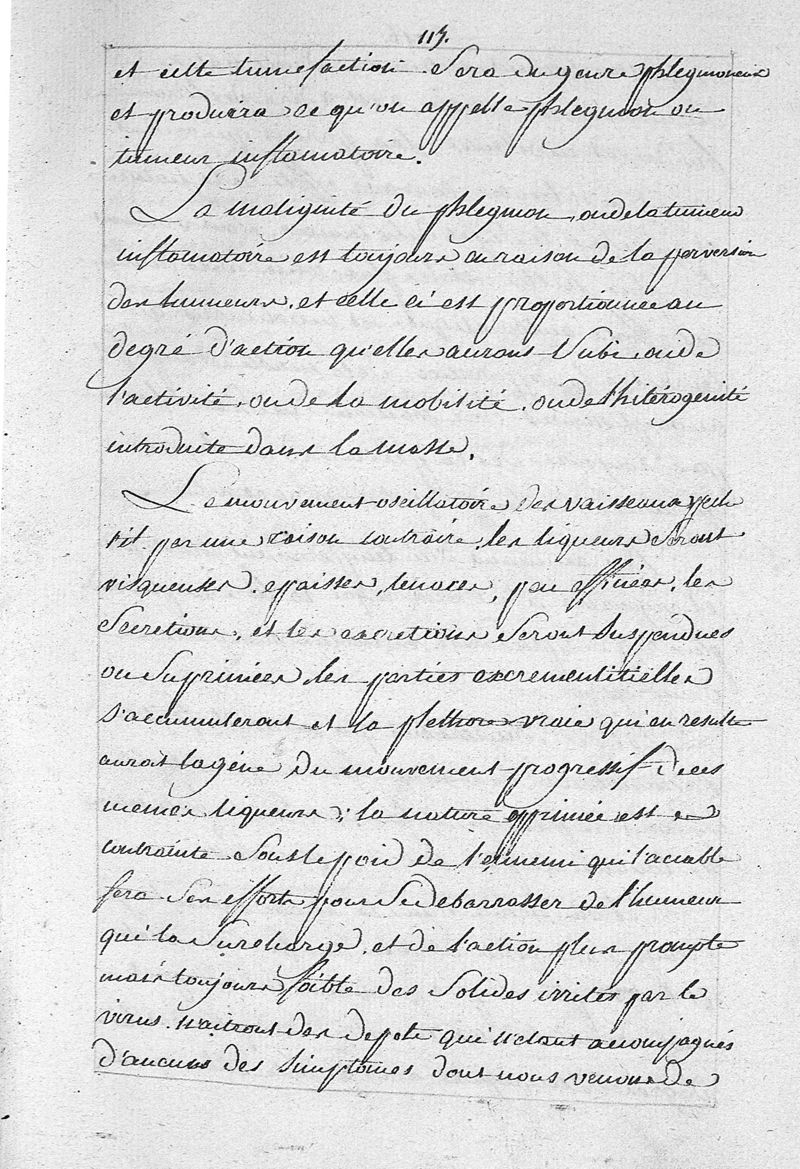 113.
et cette tumefaction sera du genre phlegmoneux
et produira ce qu'on appelle phlegmon ou
tumeur inflamatoire.
La malignité du phlegmon, ou de la tumeur
inflamatoire est toujours en raison de la perversion
des humeurs, et celle ci est proportionnee au
degré d'action qu'elles auront subi, ou de
l'activité, ou de la mobilité, ou de l'hétérogénité
introduite dans la masse.
Le mouvement oscillatoire des vaisseaux
par une raison contraire, les liqueurs seront
visqueuses, epaisses, tenaces, peu affinées, les
secretions, et les excretions seront suspendues
ou suprimées, les parties excrementitielles
s'accumuleront et la plethore vraie qui en resulte
auroit la gêne du mouvement progressif de ces
memes liqueurs; la nature opprimée est en
contrainte sous le poid de l'ennemi qui l'accable
fera ses efforts pour se debarrasser de l'humeur
qui la surcharge, et de l'action plus prompte
mais toujours foible des solides irrités par le
virus naitront des depots qui n'étant accompagnés
d'aucuns des simptomes dont nous venons de